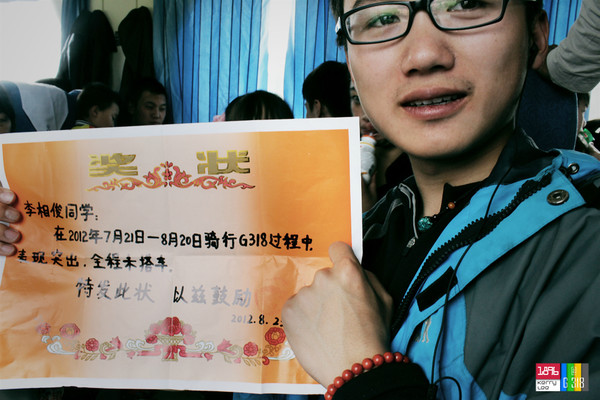 奖状
李相俊同学:
在2012年7月21日—8月20日骑行G318过程中
表现突出,全程未搭车.
特发此状 以兹鼓励
2012.8.2
1896
Kerry
Lao
G318